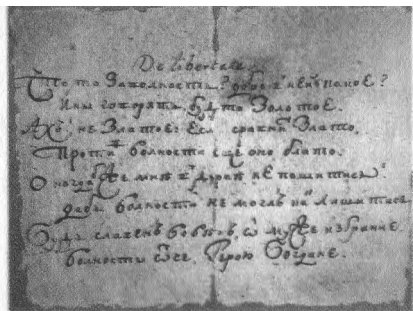 De libertate
Что то за волность? добро в ней какое?
Ины говорят, будто золотое.
Ах! не златое: если сравнить злато,
Против волности еще оно блато.
О когда бы же мне в дурни не пошитись,
дабы волности не могл как лишитись.
Будь славен вовѣк, ѿ муже избранне,
волности ѿче, Герою Богдане.